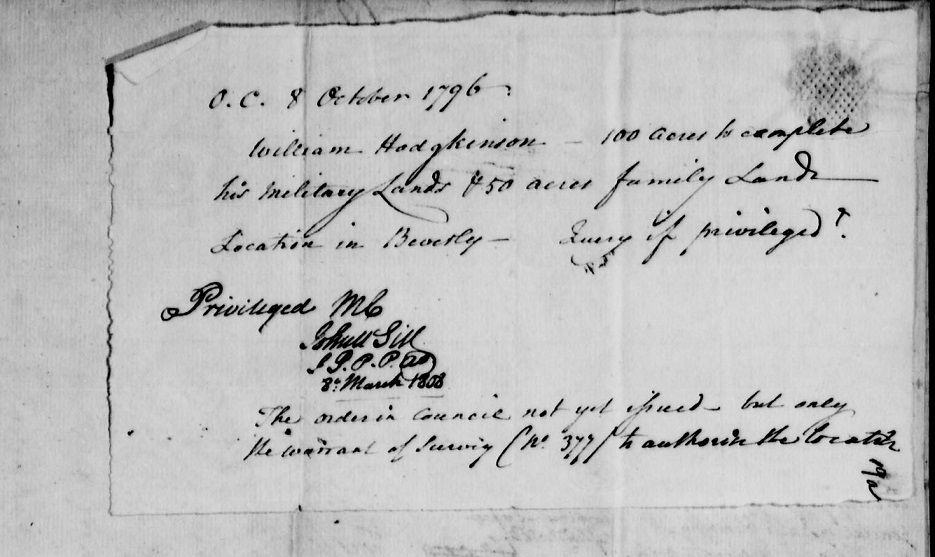 O. C. 8 October 1796.
William Hodgkinson — 100 acres to complete
his Military Lands & 50 acres family Lands
Location in Beverly — Query if privileged?
Privileged
Small Gill
8th March 1808
The order in Council not yet issued — but only
the warrant of Survey (No 377) to authorize the location